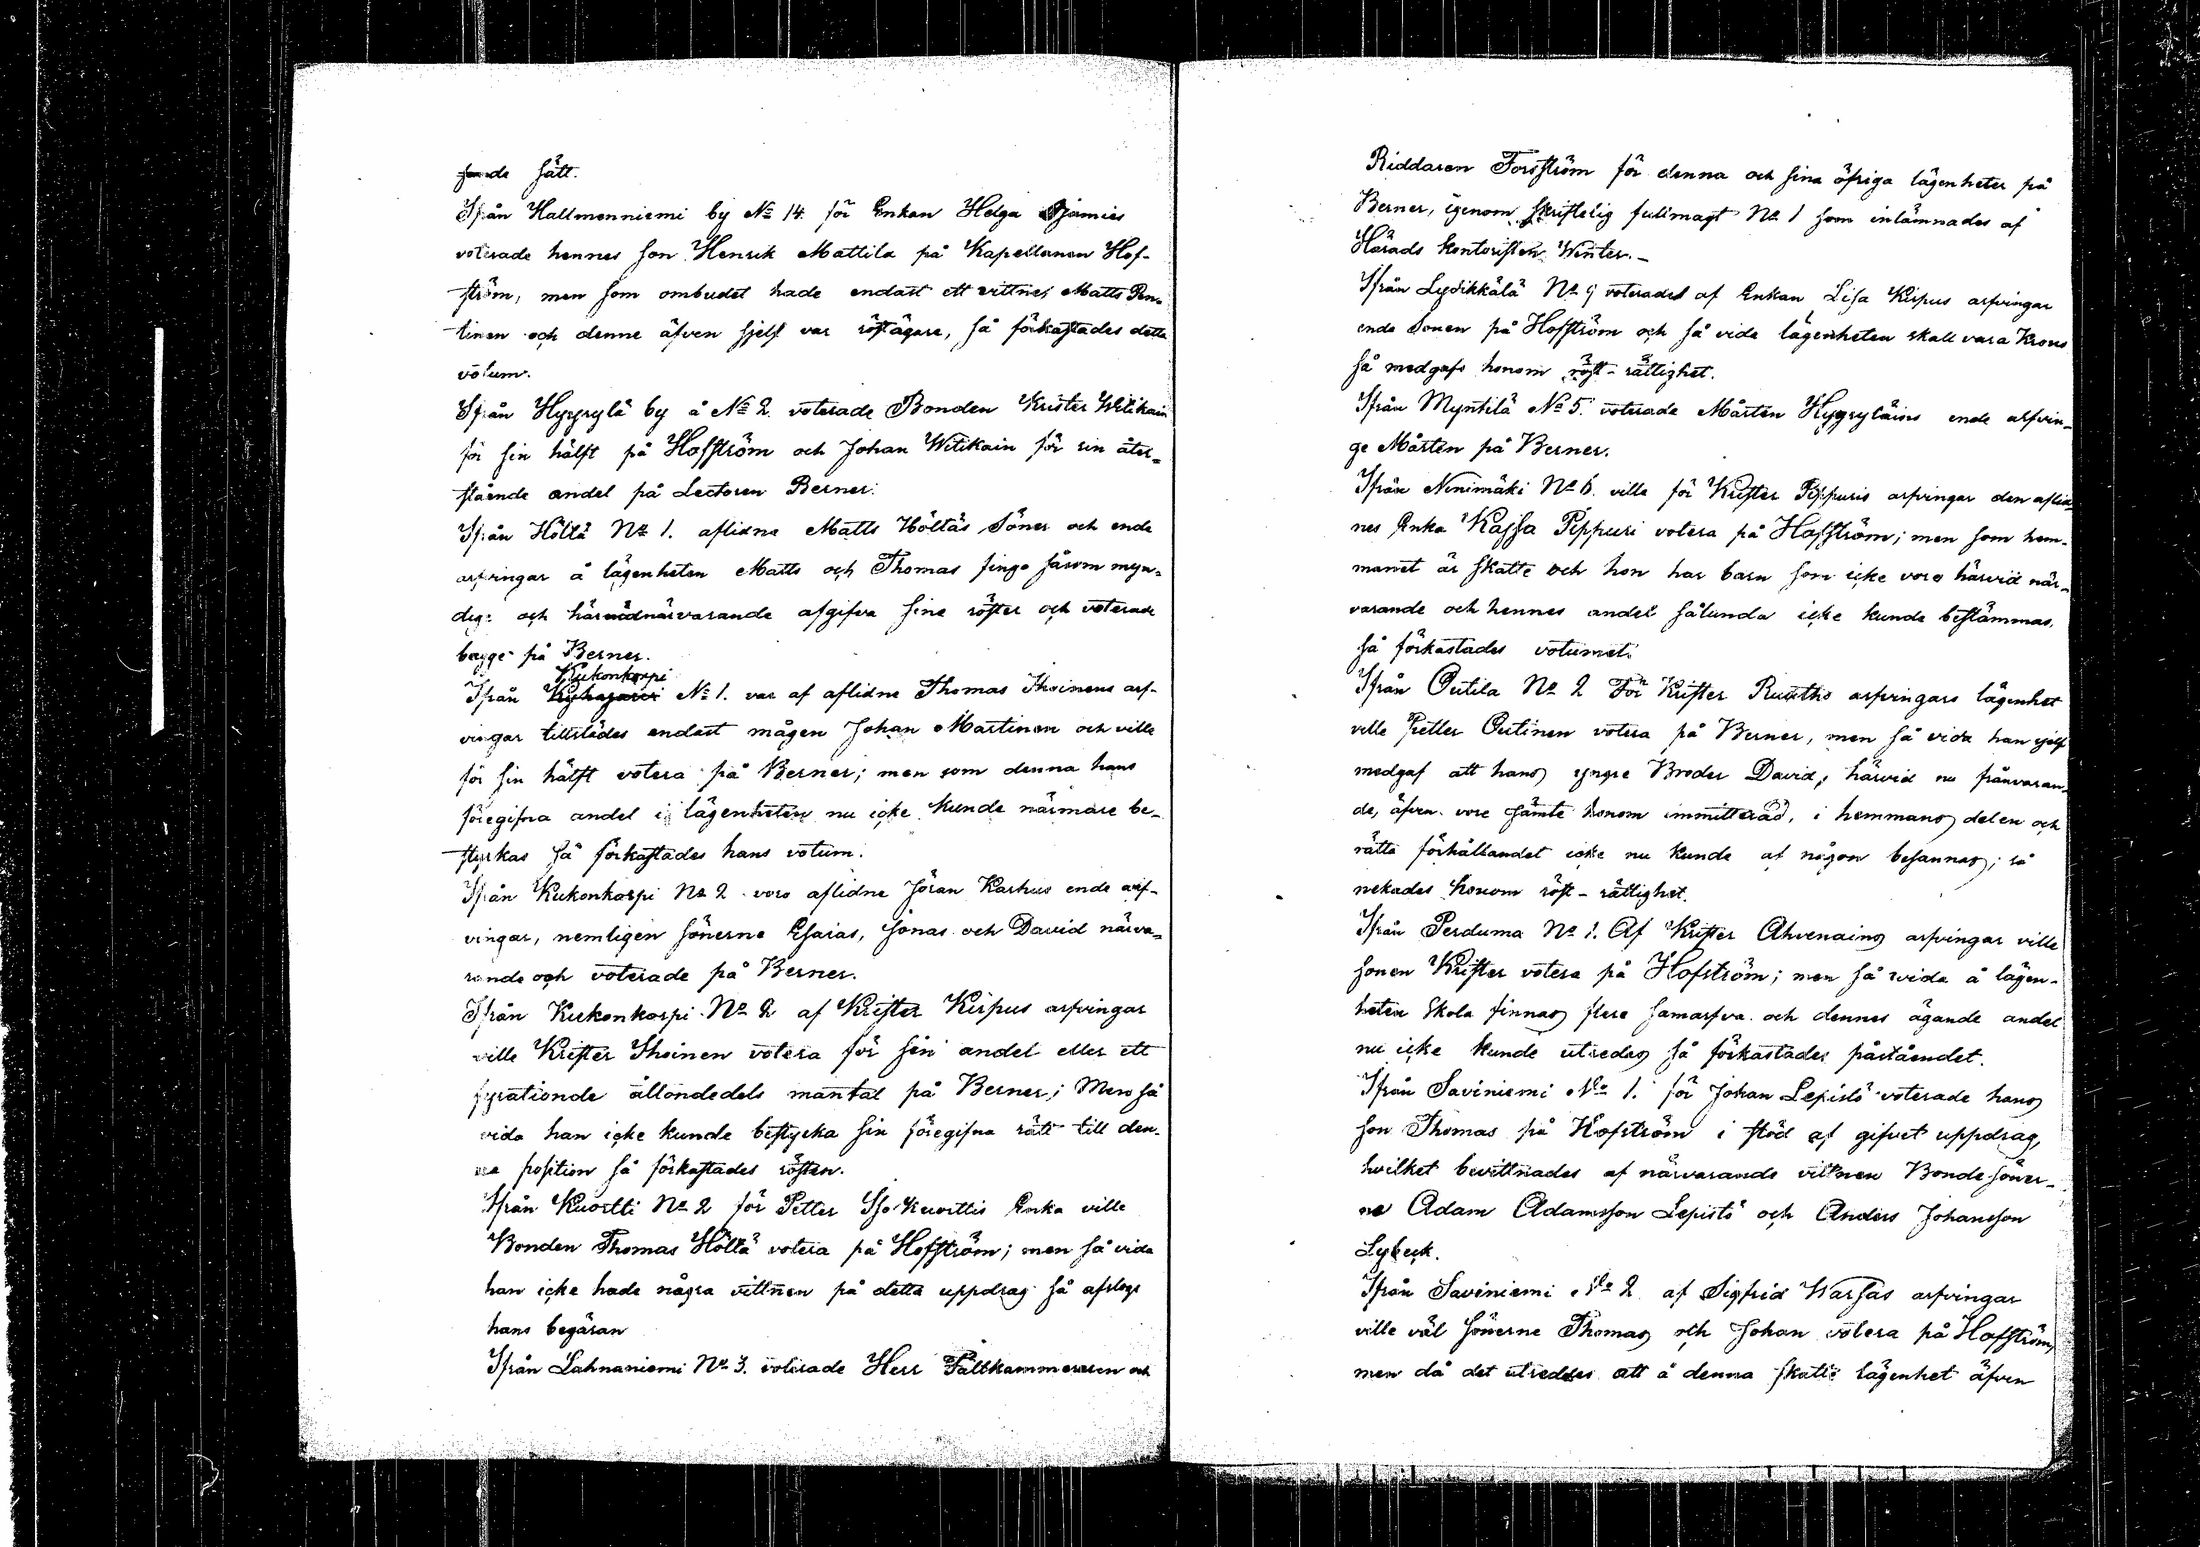 sätt.
Ifrån Hallmenniemi by No 14. för Enkan Helga
voterade hennes son Henrik Mattila på Kapellanen Hof-
ström, men som ombudet hade endast ett vittne, Matts Pen-
tinen och denne äfven sjelf var röstägare, så förkastades detta
votum.
Ifrån Hyyrylä by å No 2. voterade Bonden Krister Witikain
för sin hälft på Hofström och Johan Witikain för sin åter-
stående andel på Lectoren Berner.
Ifrån Höltä No 1. aflidne Matts Höltäs Söner och ende
arfvingar å lägenheten Matts och Thomas fingo såsom myn-
dige och härvidnärvarande afgifva sine röster och voterade
begge på Berner.
Kukonkorpi
Ifrån No 1. var af aflidne Thomas Ihoinens arf-
vingar tillstädes endast mågen Johan Martinen och ville
för sin hälft votera på Berner; men som denna hans
föregifna andel i lägenheten nu icke kunde närmare be-
styrkas så förkastades hans votum.
Ifrån Kukonkorpi No 2 voro aflidne Jöran Karhus ende arf-
vingar, nemligen sönerne Esaias, Jonas och David närva-
rande och voterade på Berner.
Ifrån Kukonkorpi No 2 af Krister Kirpus arfvingar
ville Krister Ihoinen votera för sin andel eller ett
fyrationde åttondedels mantal på Berner; Men så
vida han icke kunde bestyrka sin föregifna rätt till den-
na position så förkastades rösten.
Ifrån Kuortti No 2 för Petter Iso-Kuorttis Enka ville
Bonden Thomas Höltä votera på Hofström; men så vida
han icke hade några vittnen på detta uppdrag så afslogs
hans begäran
Ifrån Lahnaniemi No 3. voterade Herr Fältkammereren och
Riddaren Forsström för denna och sina öfriga lägenheter på
Berner, igenom skriftelig fullmagt No 1 som inlämnades af
Härads kontoristen Winter.-
Ifrån Lydikkälä No 9 voterades af Enkan Lisa Kirpus arfvingar
ende Sonen på Hofström och så vida lägenheten skall vara Krono
så medgafs honom röst-rättighet.
Ifrån Myntilä No 5. voterade Mårten Hyyryläins ende arfvin-
ge Mårten på Berner.
Ifrån Ninimäki No 6. ville för Krister Pippuris arfvingar den aflid
nes Enka Kajsa Pippuri votera på Hofström; men som hem-
manet är skatte och hon har barn som icke voro härvid när-
varande och hennes andel sålunda icke kunde bestämmas,
så förkastades votumet.
Ifrån Outila No 2 För Krister Ruuths arfvingars lägenhet
ville Petter Outinen votera på Berner, men så vida han sjelf
medgaf att hans yngre Broder David, härvid nu frånvaran-
de, äfven vore jämte honom immitterad, i hemmans delen och
rätta förhållandet icke nu kunde af någon besannas; så
nekades honom röst-rättighet.
Ifrån Perduma No 1. Af Krister Ahvenains arfvingar ville
sonen Krister votera på Hofström; men så vida å lägen-
heten skola finnas flere samarfva och dennes ägande andel
nu icke kunde utredas så förkastades påståendet.
Ifrån Saviniemi No 1. för Johan Lepistö voterade hans
son Thomas på Hofström i stöd af gifvet uppdrag,
hvilket bevittnades af närvarande vittnen Bonde-söner-
ne Adam Adamsson Lepistö och Anders Johansson
Lybeck.
Ifrån Saviniemi No 2 af Sigfrid Warsas arfvingar
ville väl sönerne Thomas och Johan votera på Hofström,
men då det utreddes att å denna skatte lägenhet äfven